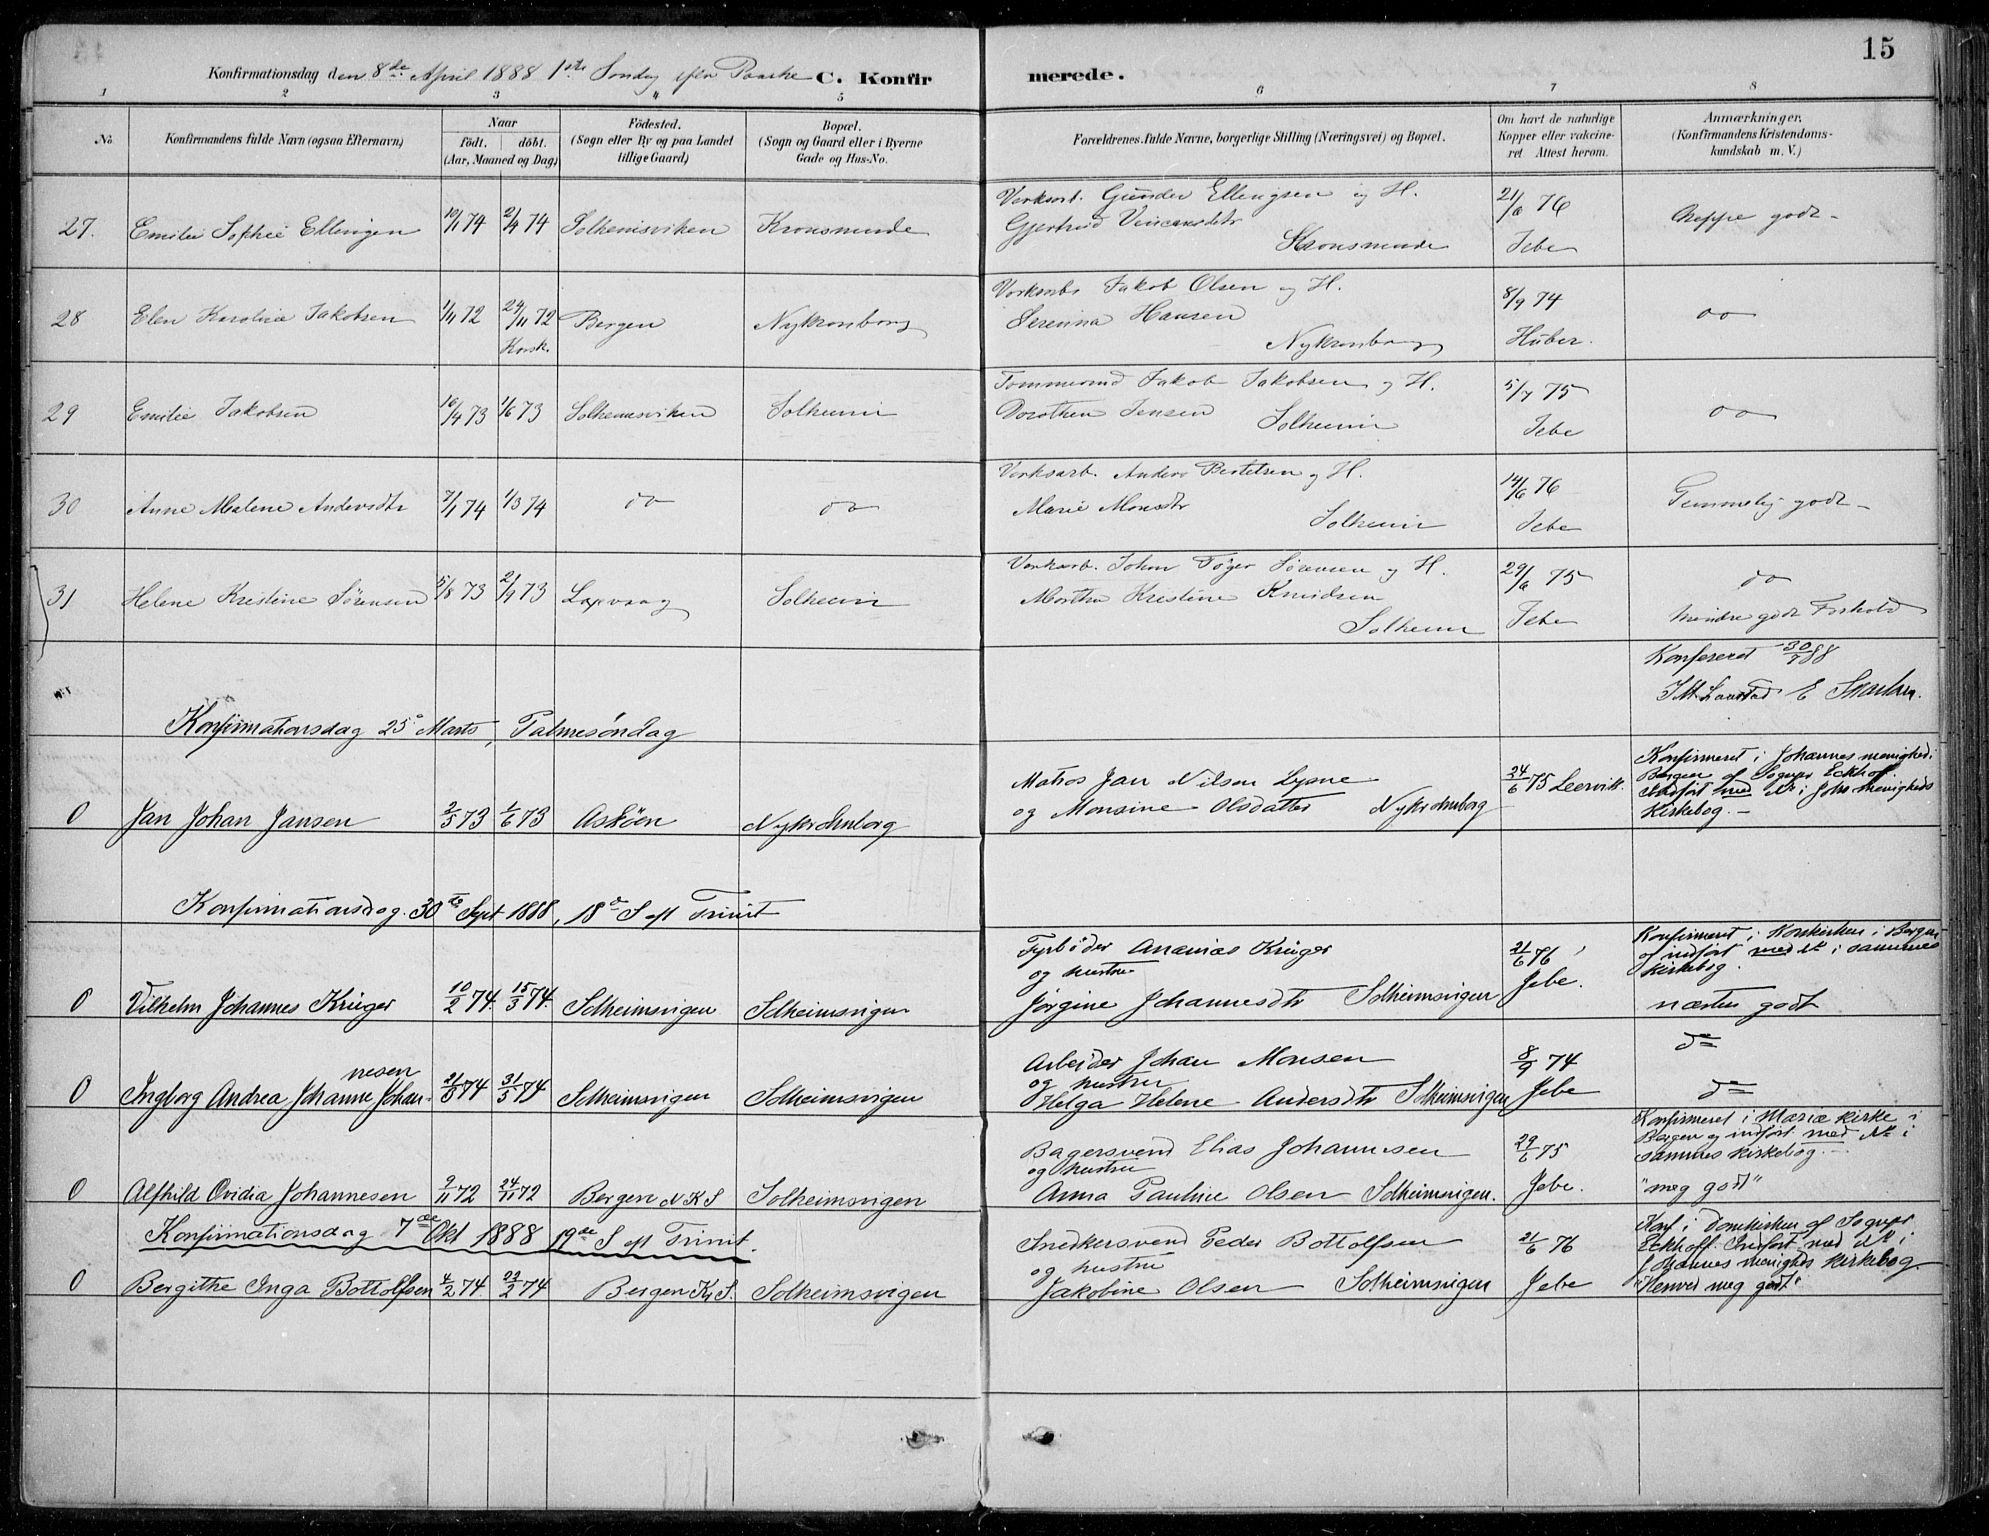 15
Konfirmationsdag den 8de April 1888 1ste Søndag efter Paaske C. Konfirmerede.
1 2 3 4 5 6 7 8
No
Konfirmandens fulde Navn (ogsaa Efternavn)
Naar
födt. döbt.
(Aar, Maaned og Dag)
Födested.
(Sogn eller By og paa Landet
tillige Gaard)
Bopæl.
(Sogn og Gaard eller i Byerne
Gade og Hus-No.
Forældrenes fulde Navne, borgerlige Stilling (Næringsvei) og Bopæl.
Om havt de naturlige
Kopper eller vakcine-
ret Attest herom.
Anmærkninger.
(Konfirmandens Kristendoms-
kundskab m. V.)
27. Emilie Sophie Ellingsen 10/1 74 2/4 74 Solheimsviken Kronsminde
Verksarb. Gunder Ellengsen og H.
Gjertrud Vincentsdtr
Kronsminde
21/6 76
Jebe
Neppe godt
28 Elen Karoline Jakobsen 1/11 72 24/11 72 Bergen Nykronborg
Korsk.
Verksarb. Jakob Olsen og H.
Serenina Hansen
Nykronborg
8/9 74
Huber.
do
29 Emilie Jakobsen 16/4 73 1/6 73 Solheimsviken Solheim
Tømmermd Jakob Jakobsen og H.
Dorothea Jensen
Solheim
5/7 75
Jebe
do
30 Anne Malene Andersdtr 7/1 74 1/3 74 do do
Verksarb. Anders Bertelsen og H.
Marie Monsdtr
Solheim
14/6 76
Jebe
Temmelig godt
31 Helene Kristine Sørensen 5/8 73 2/9 73 Laxevaag Solheim
Verksarb. Johan Tøger Sørensen og H.
Martha Kristine Knudsen
Solheim
29/6 75
Jebe
do
Mindre godt Forhold
Konfereret 30/7 88
Konfirmationsdag 25de Marts, Palmesøndag
0 Jan Johan Jansen 2/5 73 1/6 73 Askøen Nykrohnborg
Matros Jan Nilsen Lysne
og Monsine Olsdatter Nykrohnborg
24/6 75 Leervik.
Konfirmeret i Johannes menighed.
Bergen af Sognpr Eckhof.
Indført med No i Johs Menigheds
Kirkebog.
Konfirmationsdag. 30te Sept 1888, 18de S eft Trinit
0 Vilhelm Johannes Krüger 10/2 74. 15/3 74. Solheimsvigen Solheimsvigen
Fyrbøder Ananias Krüger
og hustru
Jørgine Johannesdtr Solheimsvigen
21/6 76
Jebe.
Konfirmeret i Korskirken i Bergen
og indført med No i sammes
Kirkebog.
næsten godt
0 Ingborg Andrea Johanne Johannesen 21/3 74 31/5 74 Solheimsvigen Solheimsvigen
Arbeider Johan Monsen
og hustru
Helga Helene Andersdtr Solheimsvigen
8/9 74
Jebe
do
do
0 Alfhild Ovidia Johannesen 9/11 72 24/11 72 Bergen N K S Solheimsvigen
Bagersvend Elias Johannesen
og hustru
Anna Pauline Olsen Solheimsvigen.
29/6 75
Jebe.
Konfirmeret i Mariæ Kirke i
Bergen og indført med No i
sammes Kirkebog.
"meg godt"
Konfirmationsdag 7de Okt 1888 19de S eft Trinit.
0 Bergithe Inga Bottolfsen 4/2 74 22/2 74 Bergen K S. Solheimsvigen
Snedkersvend Peder Bottolfsen
og hustru
Jakobine Olsen Solheimsvigen
21/6 76
Jebe
Konf i Domkirken af Sognpr
Eckhoff. Indført med No i
Johannes menigheds Kirkebog
"Henved meg godt"